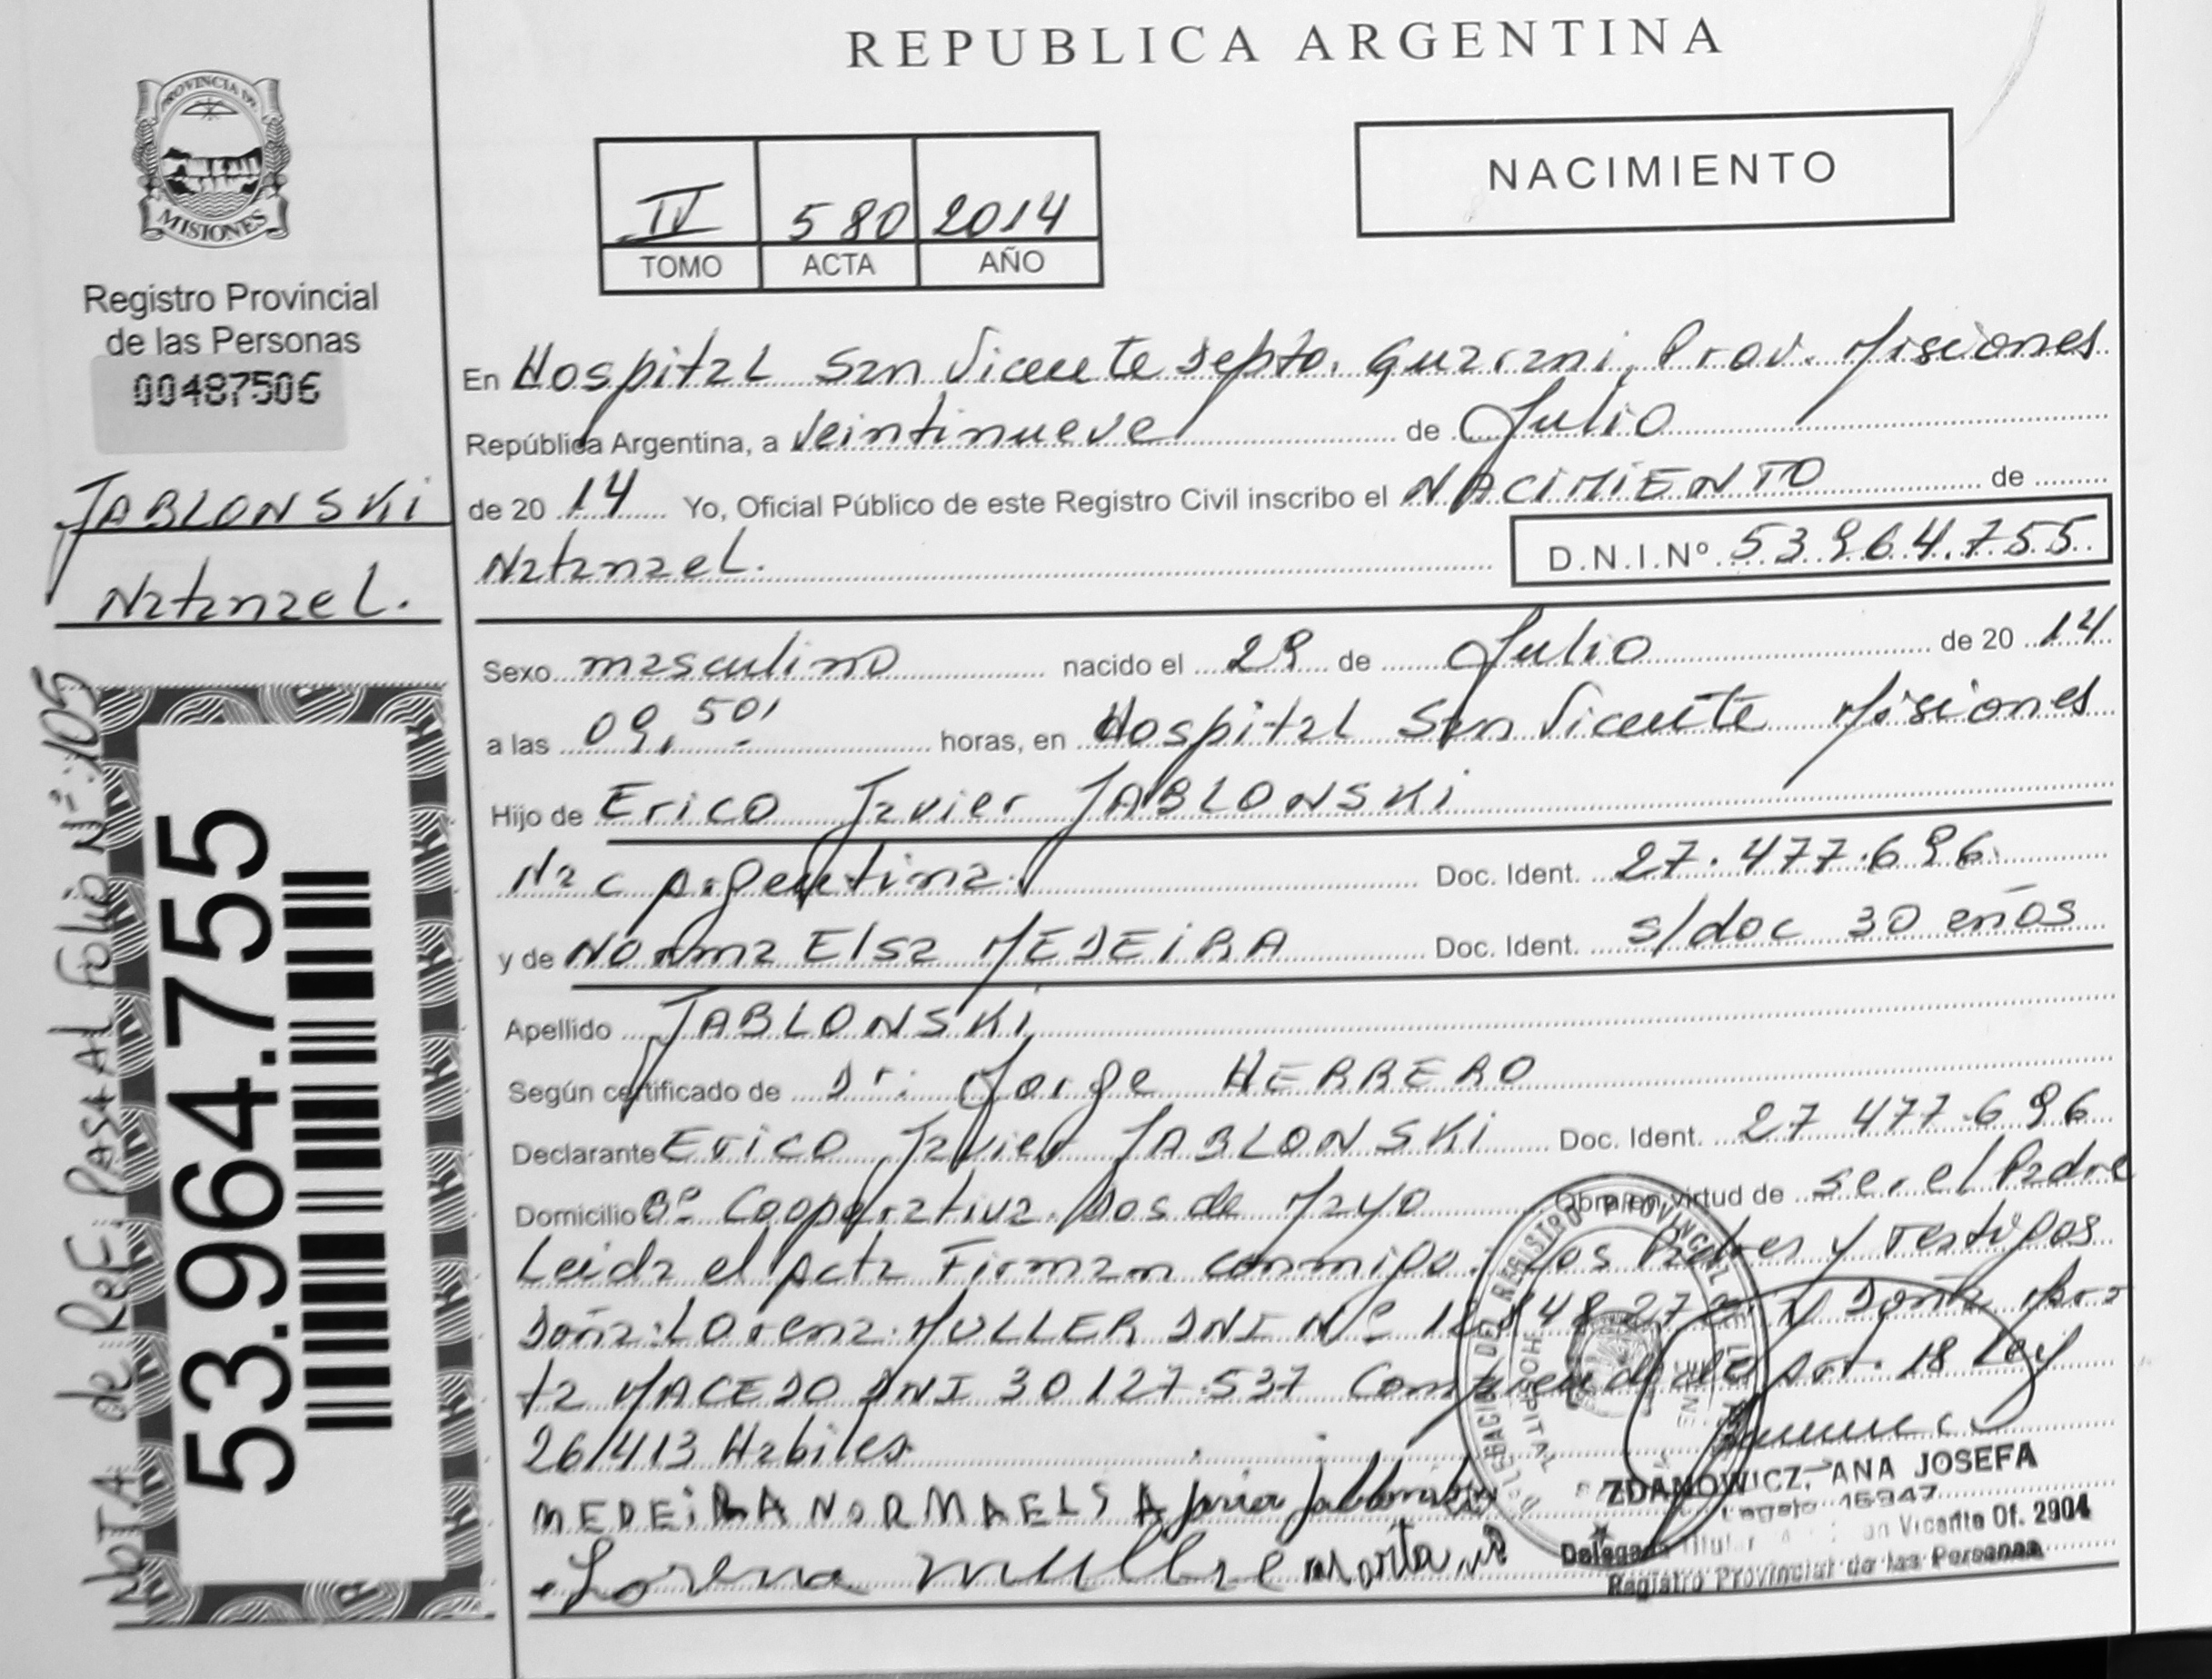 REPUBLICA ARGENTINA
PROVINCIA DE
MISIONES
Registro Provincial
de las Personas
00487506
JABLONSKi
Natanael.
NOTA de REF. Pasa AL Folio Nº: 105
53.964.755
IV 580 2014
TOMO ACTA AÑO
NACIMIENTO
En Hospital San Vicente Depto. Guarani, Prov. Misiones
República Argentina, a Veintinueve de Julio
de 20 14 Yo, Oficial Público de este Registro Civil inscribo el NACIMIENTO de
Natanael. D.N.I.Nº 53.964.755
Sexo masculino nacido el 29 de Julio de 20 14
a las 09,50' horas, en Hospital San Vicente Misiones
Hijo de Erico Javier JABLONSKi
Nac Argentina Doc. Ident. 27.477.696
y de Norma Elsa MEDEiRA Doc. Ident. s/doc 30 años
Apellido JABLONSKi
Según certificado de Dr. Jorge HERRERO
Declarante Erico Javier JABLONSKi Doc. Ident. 27 477.696
Domicilio Bº Cooperativa Dos de Mayo Obra en virtud de ser el Padre
Leida el Acta Firman conmigo: Los Padres y Testigos
Doña: Lorena MULLER DNI Nº Doña Mar
ta MACEDO DNI 30 127.537 Art. 18 Ley
26/413 Habiles
MEDEiRA NORMA ELSA
Lorena Marta
DELEGACION DEL REGISTRO PROVINCIAL
HOSPITAL
ZDANOWICZ ANA JOSEFA
Legajo 15347
Delegada Titular Vicente Of. 2904
Registro Provincial de las Personas